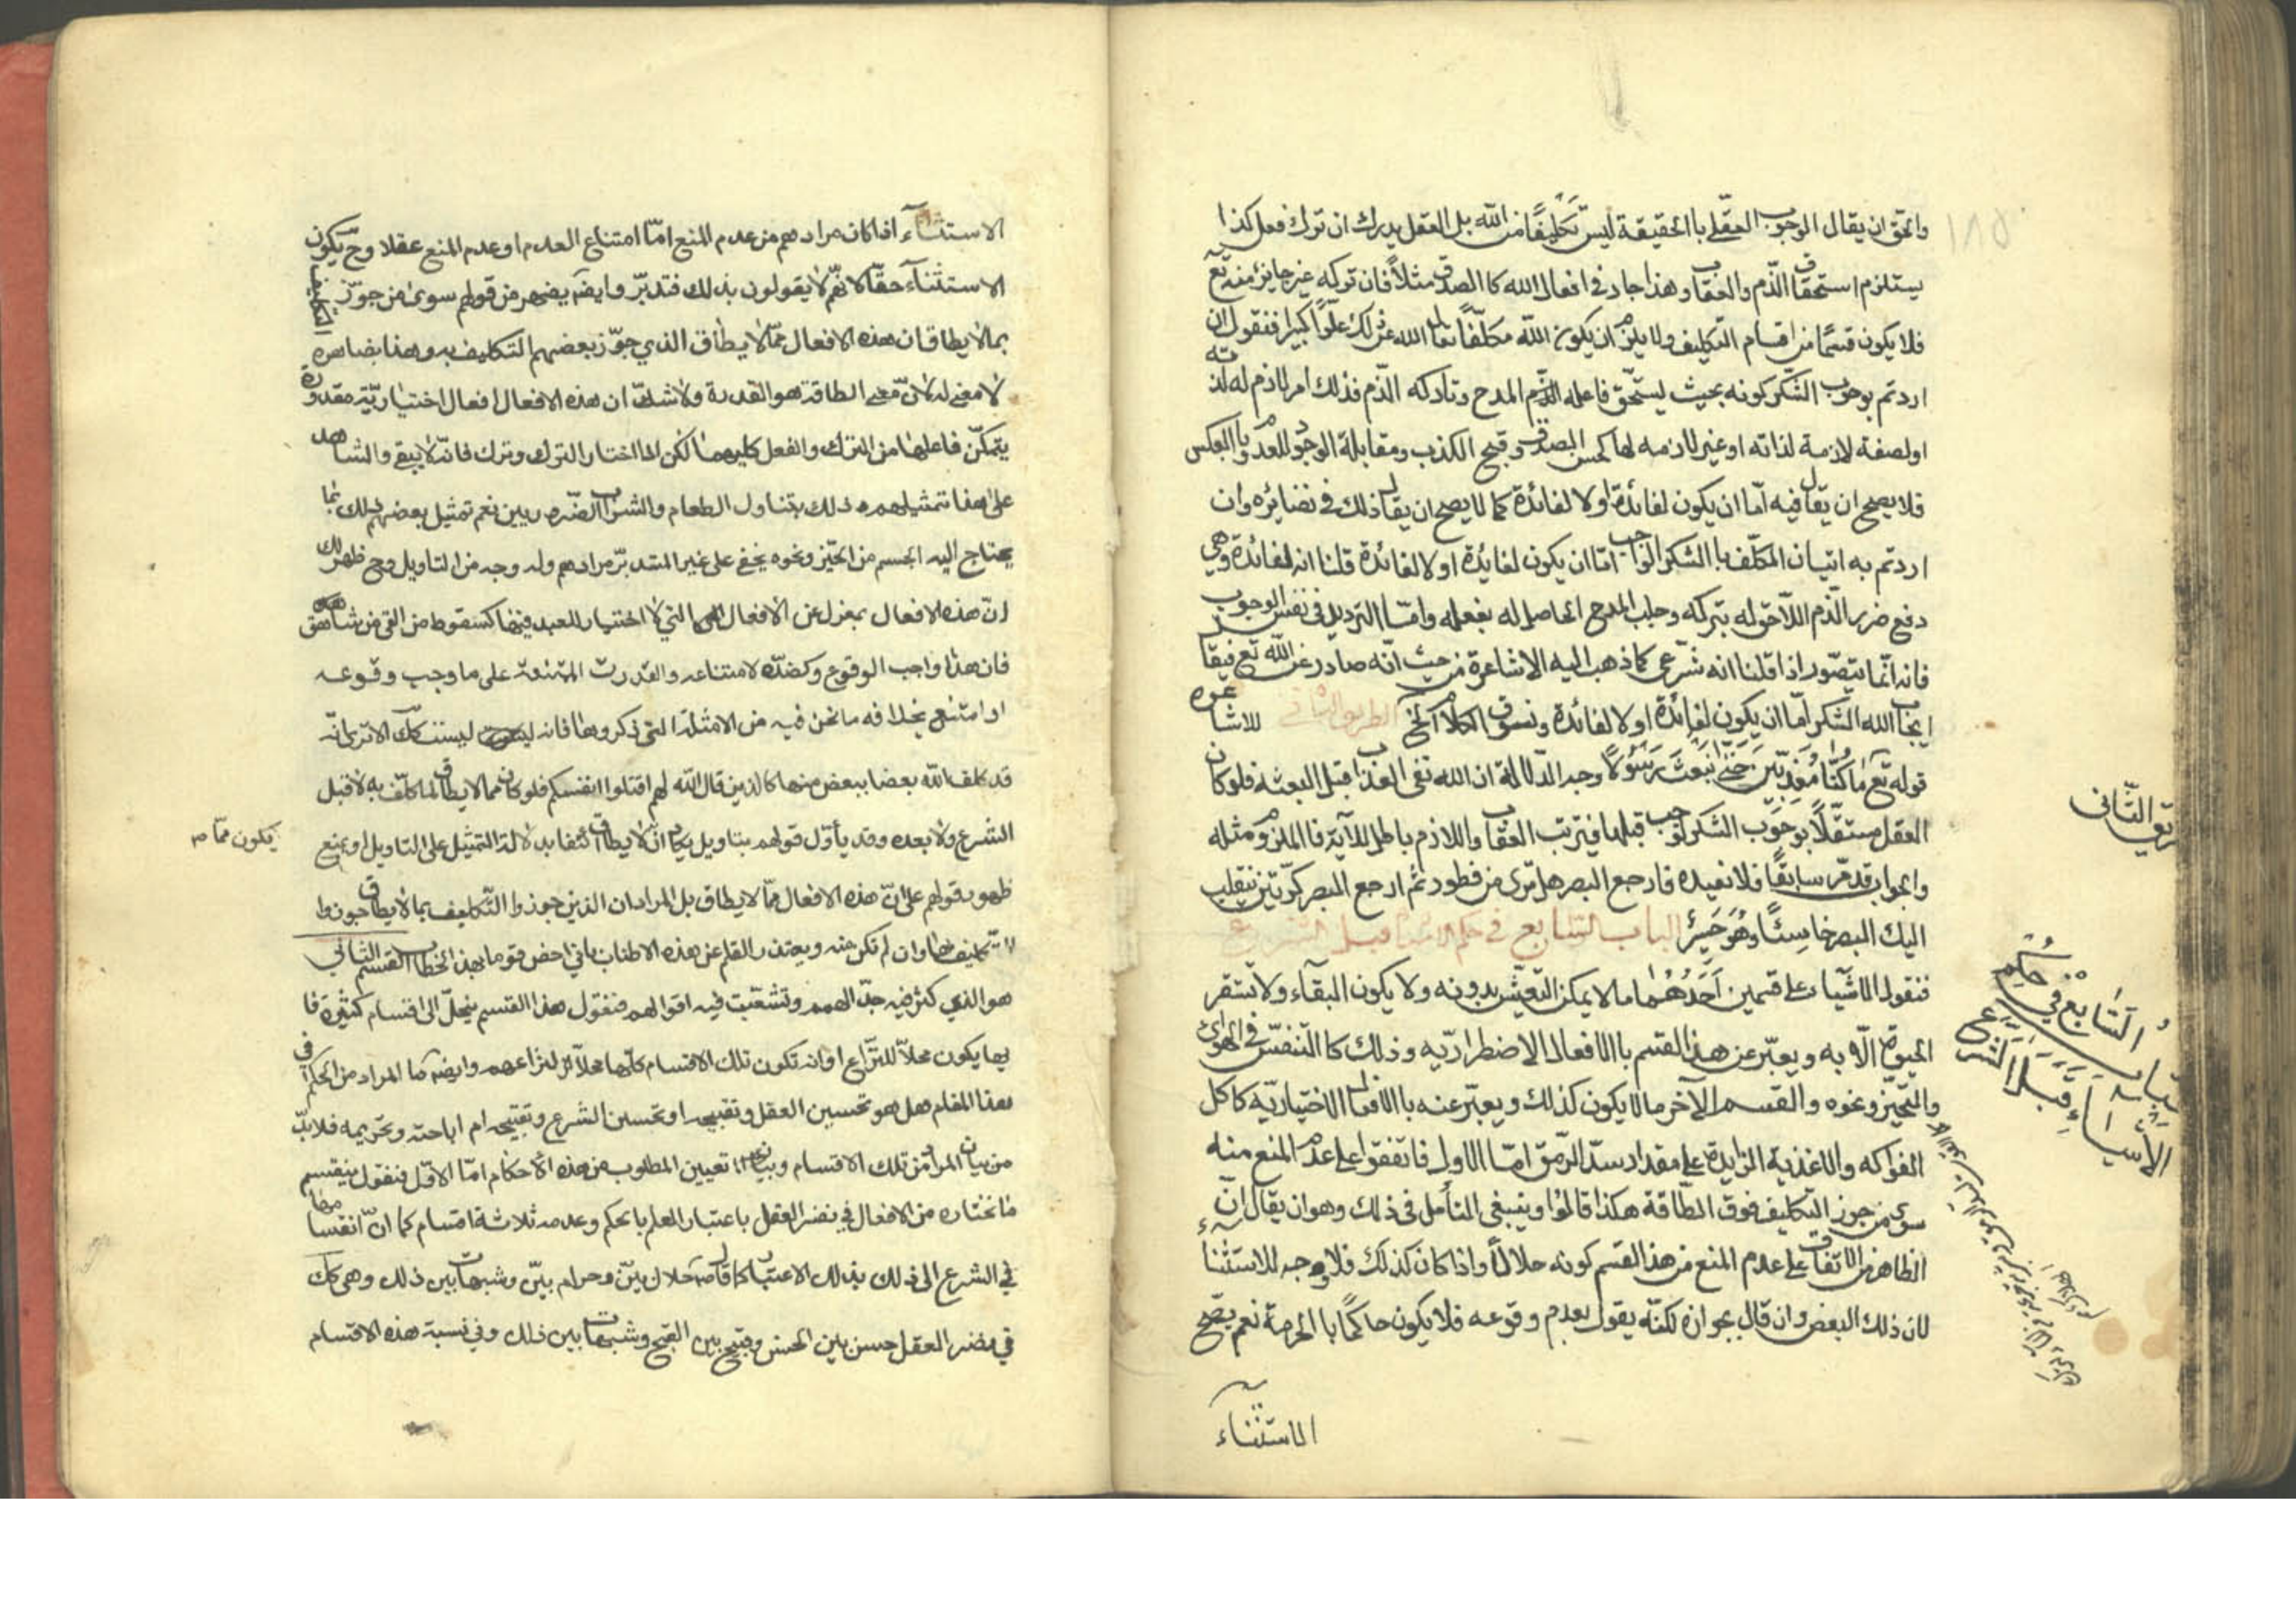 والحق ان يقال الوجوب العقلي بالحقيقة ليس تكليفًا من الله بل العقل يدرك ان ترك فعل كذا
يستلزم استحقاق الذّم والعقاب وهذا جار في افعال الله كالصدق مثلاً فان تركه غير جايز منه تع
فلا يكون قسمًا من اقسام التكليف ولا يلزم ان يكون الله مكلّفًا تعالى الله عن ذلك علوًّا كبيرا فنقول ان
اردتم بوجوب الشّكر كونه بحيث يستحق فاعله المدح وتاركه الذّم فذلك امر لازم له لذاته
اولصفة لازمة لذاته او غير لازمه لها كحسن الصدق وقبح الكذب ومقابلة الوجود للعدم وبالعكس
فلا يصح ان يقال فيه امّا ان يكون لفائدة اولا لفائدة كما لا يصح ان يقال ذلك في نضائره وان
اردتم به اتيان المكلّف بالشكر الواجب امّا ان يكون لفائدة اولا لفائدة قلنا انه لفائدة وهي
دفع ضرر الذّم اللّاحق له بتركه وجلب المدح الحاصل له بفعله وامّا الترديد في نفس الوجوب
فانه انّما يتصّور اذا قلنا انه شرعي كما ذهب اليه الاشاعرة من حيث انّه صادر عن الله تع فيقال
ايجاب الله الشكر امّا ان يكون لفائدة اولا لفائدة ونسوق الكلام الخ الطريق الثاني للاشاعره
قوله تع مَا كُنَّا مُعَذِّبِيْنَ حَتّٰى نَبْعَثَ رَسُوْلًا وجه الدّلالة ان الله نفى العذاب قبل البعثه فلو كان
العقل مستقلًّا بوجوب الشكر لوجب قبلها فيترتب العقاب واللازم باطل للآية فالملزوم مثله
والجواب قد مّر سابقًا فلا نعيده فارجع البصر هل ترى من فطور ثم ارجع البصر كرّتين ينقلب
اليك البصر خاسِئًا وهُوَ حَسِيْرٌ الباب السّابع في حكم الاشياء قبل الشرع
فنقول الاشّياء على قسمين اَحَدُهُمَا ما لا يمكن التّعيّش بدونه ولا يكون البقآء ولا تستقر
الحيوة الّا به ويعبّر عن هذا القسم بالافعال الاضطراريّه وذلك كالتّنفّس في الهوآى
والتحيّز ونحوه والقسم الآخر ما لا يكون كذلك ويعبّر عنه بالافعال الاختياريّه كاكل
الفواكه والاغذية الزايدة على مقدار سدّ الرّمق امّا الاول فاتفقوا على عدم المنع منه
سوى من جوز التّكليف فوق الطّاقة هكذا قالوا وينبغي التأمل في ذلك وهو ان يقال انّ
الظاهر من الاتفاق على عدم المنع من هذا القسم كونه حلالًا واذا كان كذلك فلا وجه للاستثناء
لان ذلك البعض وان قال بجوازه لكنّه يقول بعدم وقوعه فلا يكون حاكمًا بالحرمة نعم يصّح
الاستثنآء
ريق الثّاني
باب السّابع في حكم
الاشياء قبل الشّرع
الاستثنآء اذا كان مرادهم من عدم المنع امّا امتناع العدم او عدم المنع عقلا وح يكون
الاستثنآء حقّا لانهّم لا يقولون بذلك فتدبّر وايضَه يضهر من قولهم سوى من جوّز التكليف
بما لا يطاق ان هذه الافعال ممّا لا يطاق الذي جوّز بعضهم التكليف به وهذا بضاهره
لا معنى له لانّ معنى الطاقة هو القدرة ولا شك ان هذه الافعال افعال اختياريّة مقدورة
يتمكّن فاعلها من الترك والفعل كليهما لكن لما اختار الترك وترك فانّه لا يبقى والشاهد
على هذا تمثيلهم ذلك بتناول الطعام والشراب الضّروريين نعم تمثيل بعضهم ذلك بما
يحتاج اليه الجسم من الحيّز ونحوه يخفى على غير المتدبّر مرادهم وله وجه من التاويل وح ظهر لك
انّ هذه الافعال بمعزل عن الافعال التي لا اختيار للعبد فيها كسقوط من القي من شاهق
فان هذا واجب الوقوع وكضدّه لامتناعه والقدرت الممتنعة على ما وجب وقوعه
او امتنع بخلافه ما نحن فيه من الامثلة التي ذكروها فانه ليست كك الا ترى انّه
قد كلف الله بعضا ببعض منها كالذين قال الله لهم اقتلوا انفسكم فلو كان مما لا يطاق لما كلّف به لا قبل
الشرع ولا بعده وقد يأوّل قولهم بتاويل يكون ممّا لا يطاق انتفا بدلالة التمثيل على التاويل او بمنع
ظهور قولهم على انّ هذه الافعال ممّا لا يطاق بل المراد ان الذين جوزوا التّكليف بما لا يطاق جوزوا
تكليف هذا وان لم تكن منه ويعتذر القلم عن هذه الاطناب باني احض قوما بهذا الخطاب القسم الثاني
هو الذي كثر فيه جدّ الهمم وتشعّبت فيه اقوالهم فنقول هذا القسم ينحلّ الى اقسام كثيرة فا
يها يكون محلاّ للنّزاع اوان تكون تلك الاقسام كلّها محلاّ لنزاعهم وايضَه ما المراد من الحكم في
هذا المقام هل هو تحسين العقل وتقبيحه او تحسين الشرع وتقبيحه ام اباحته وتحريمه فلا بدّ
من بيان المراد من تلك الاقسام وبيان تعيين المطلوب من هذه الاحكام امّا الاوّل فنقول ينقسم
ما نختاره من الافعال في نضر العقل باعتبار العلم بالحكم وعدمه ثلاثة اقسام كما انّ انقسامها
في الشرع الى ذلك بذلك الاعتبار كما قال صه حلال بيّن وحرام بيّن وشبهات بين ذلك وهي كك
في نضر العقل حسن بين الحسن وقبيح بين القبح وشبهات بين ذلك وفي نسبة هذه الاقسام
يكون ممّا صه